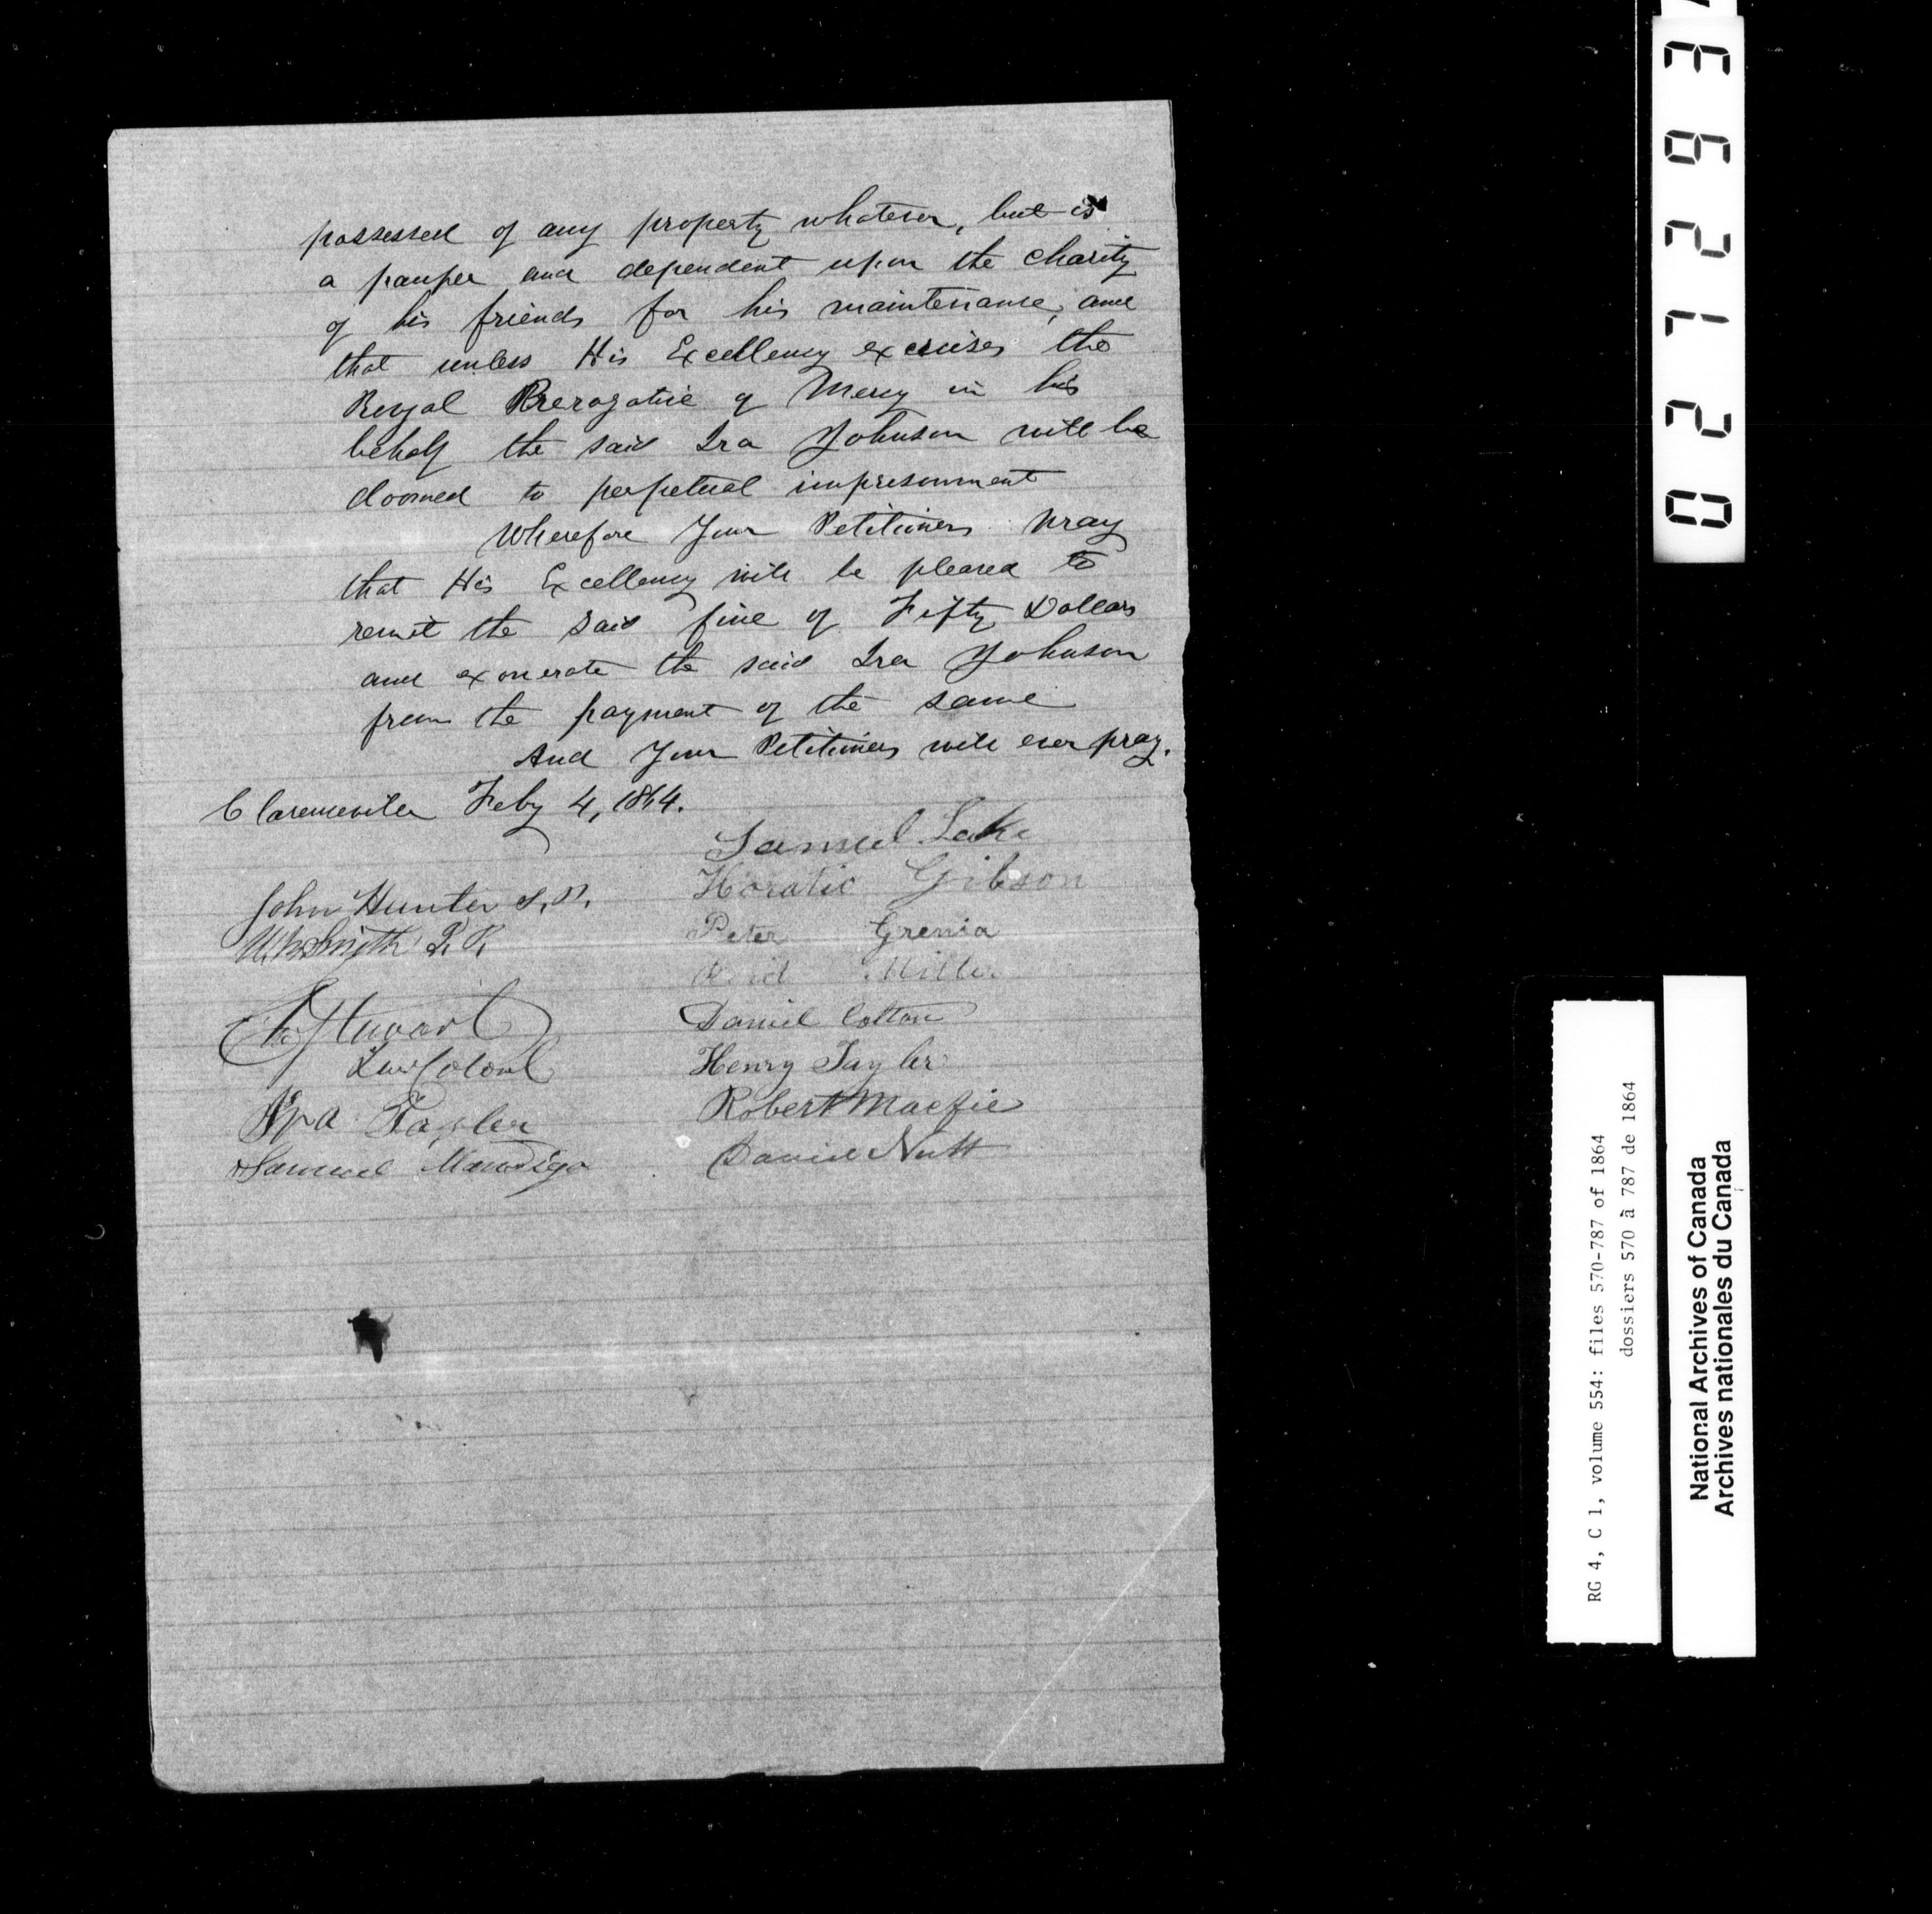 possessed of any property whatever, but is
a pauper and dependent upon the charity
of his friends for his maintenance, and
that unless His Excellency excuises the
Royal Prerogative of Mercy in his
behalf the said Ira Johnson will be
doomed to perpetual imprisonment
Wherefore Your Petitioners pray
that His Excellency will be pleased to
remit the said fine of Fifty Dollars
and exonerate the said Ira Johnson
from the payment of the same
And Your Petitioners will ever pray.
Clarenceville Feby 4, 1864.
John Hunter J.P.
Smith
Stewart
Lieu Colonel
Ira Taylor
Samuel Mandigo
Samuel Lake
Horatio Gibson
Peter Grenia
Miller
Daniel Colton
Henry Taylor
Robert Macfie
David Nutt
02712634
RG 4, C 1, volume 554: files 570-787 of 1864
dossiers 570 à 787 de 1864
National Archives of Canada
Archives nationales du Canada